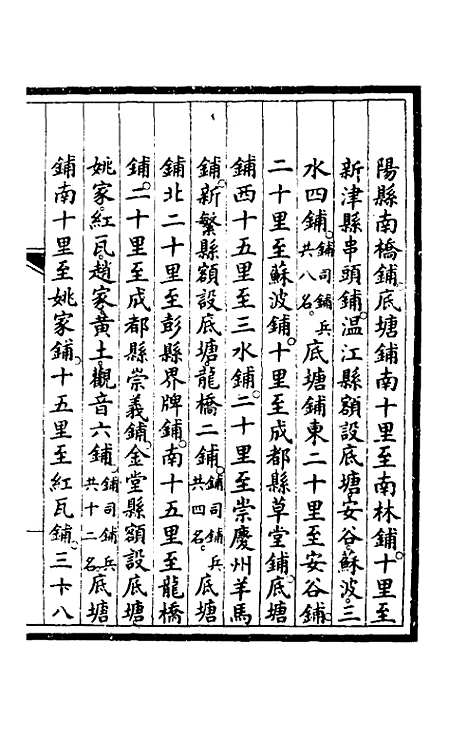 陽縣南橋鋪底塘鋪南十里至南林鋪十里至
新津縣串頭鋪溫江縣額設底塘安谷蘇波三
水四鋪鋪司鋪兵共八名底塘鋪東二十里至安谷鋪
二十里至蘇波鋪十里至成都縣草堂鋪底塘
鋪西十五里至三水鋪二十里至崇慶州羊馬
鋪新繁縣額設底塘龍橋二鋪鋪司鋪兵共四名底塘
鋪北二十里至彭縣界牌鋪南十五里至龍橋
鋪二十里至成都縣崇義鋪金堂縣額設底塘
姚家紅瓦趙家黄土觀音六鋪鋪司鋪兵共十二名底塘
鋪南十里至姚家鋪十五里至紅瓦鋪三十八